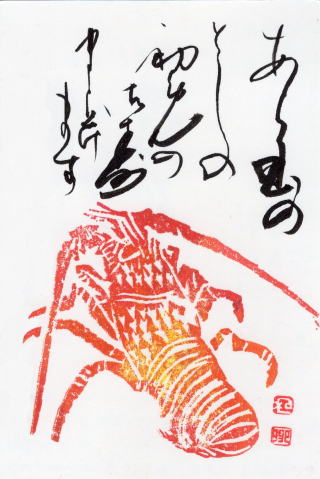 あら玉の
としの
初めの
お寿
申し上げ
ます